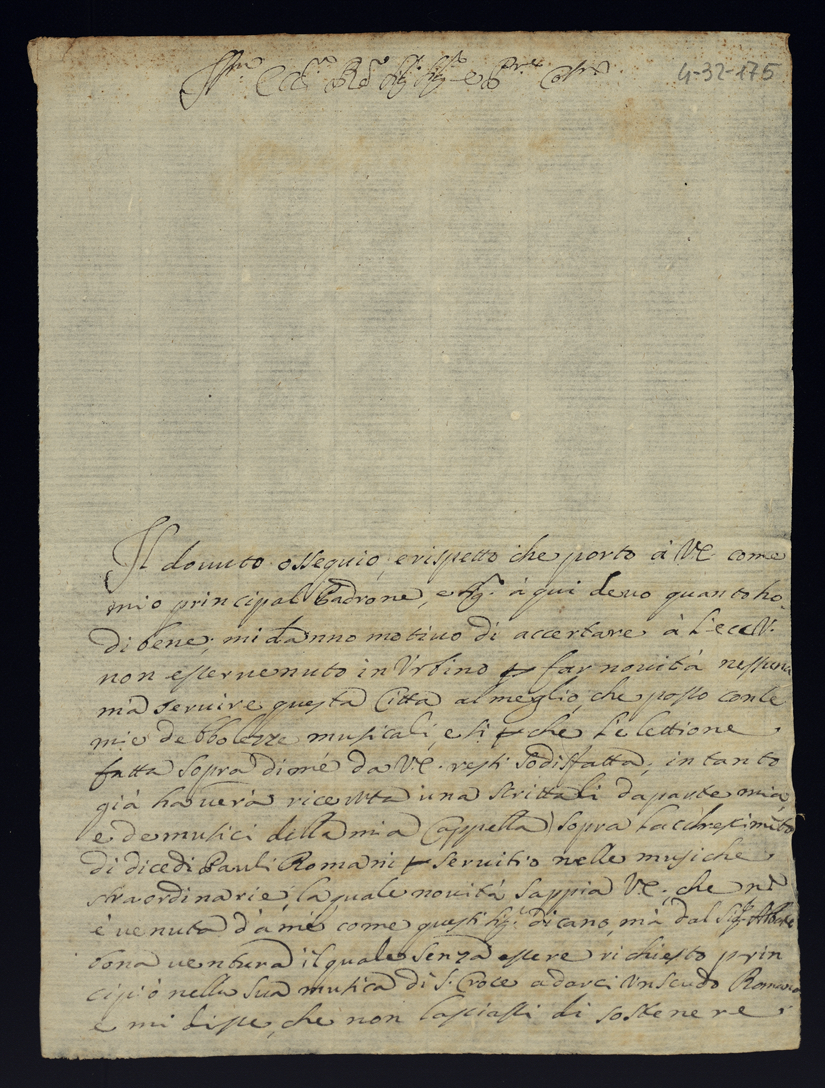 4-32-175
Il douuto ossequio, e rispetto che porto à VE. come
mio principal Padrone, e Sig.r à qui deuo quanto ho
di bene, mi danno motiuo di accertare à L'ecc. V.
non esser uenuto in Vrbino p far nouità nessuna
mà seruire questa Città al meglio, che posso con le
mie debbolezze musicali, e si p che L'elettione
fatta sopra di mé da VE. resti sodisfatta; in tanto
già hauerà riceuuta una scritta li da parte mia,
e de musici della mia Cappella sopra L'accrescimto
di dieci Pauli Romani p seruitio nelle musiche
straordinarie, la quale nouità sappia VE, che nō
è uenuta d'à mé come questi Sig.i dicano, mà dal Sig.r Abbate
bona uentura il quale senza essere richiesto prin
cipiò nella sua musica di S. Croce a darci un scudo Romano
e mi disse, che non lasciassi di sostenere